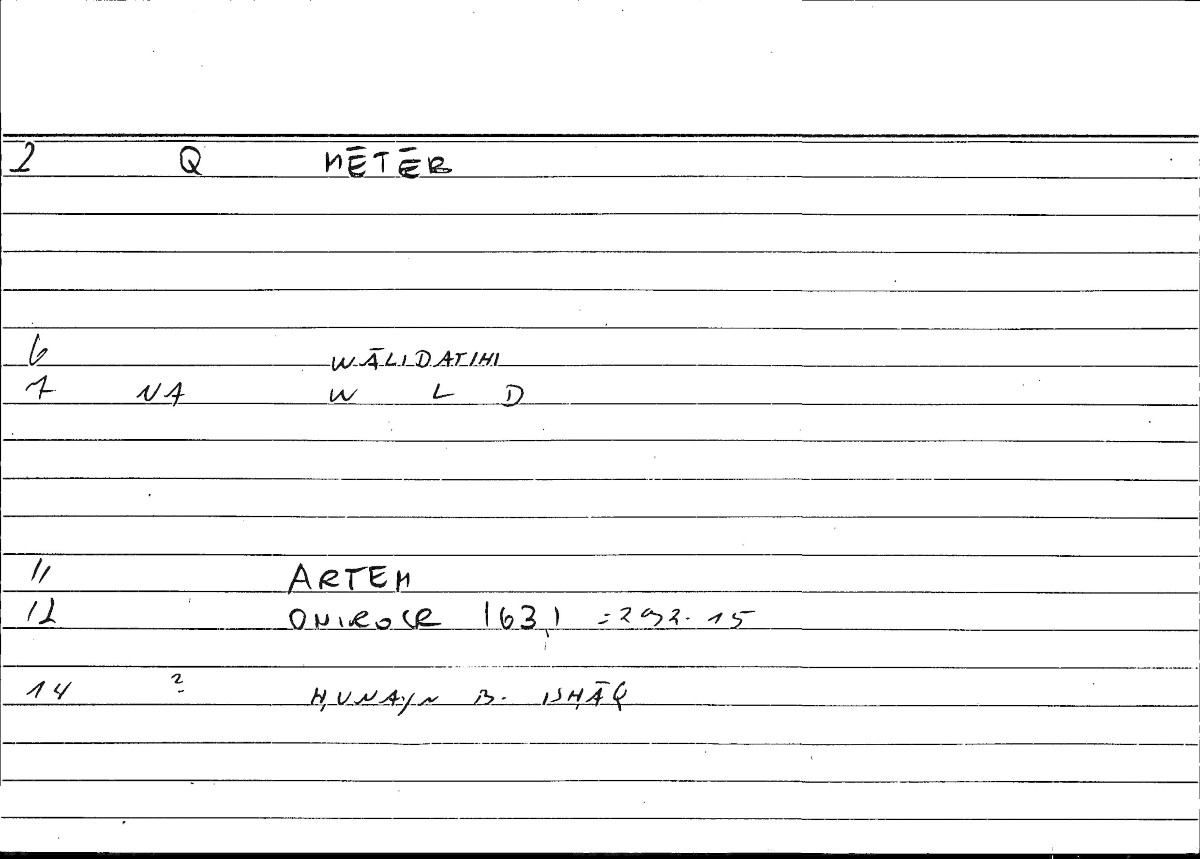 2 Q MĒTĒR
6 WĀLIDATIHI
7 NA W L D
11 ARTEM
12 ONIROCR 163,1 =292.15
14 ? ḤUNAYN B. ISḤĀQ